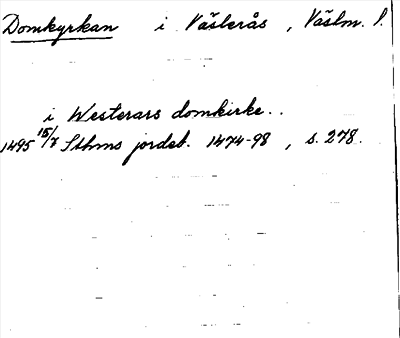 Domkyrkan i Västerås, Västm. l.
i Westerars domkirke..
1495 15/7 Sthms jordeb. 1474-98, s. 278.